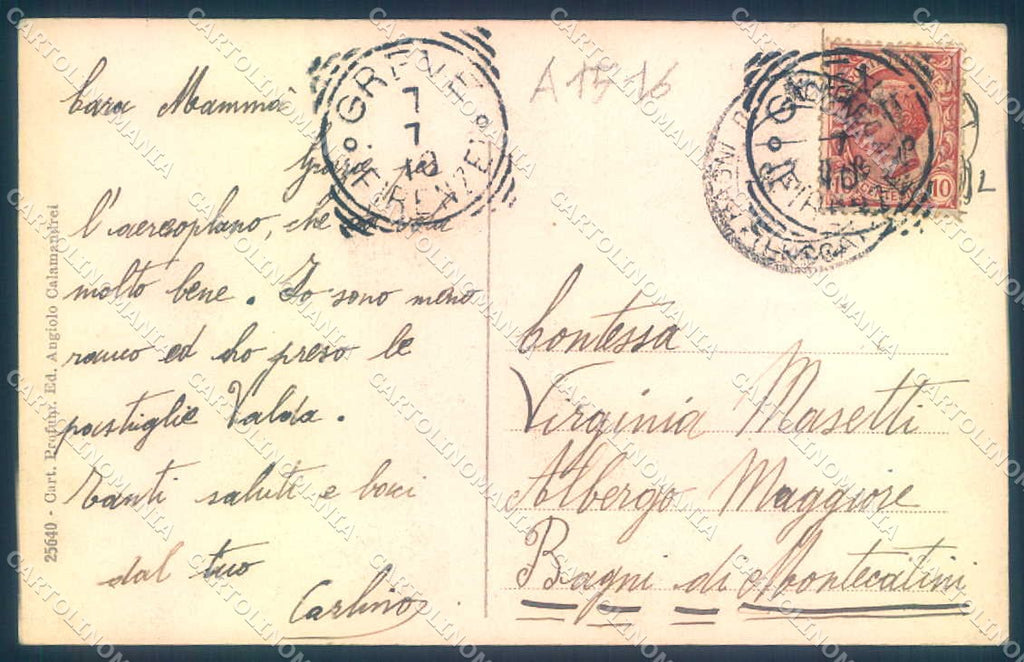 Cara Mamma
l'aereoplano, che
molto bene. Io sono meno
rauco ed ho preso le
pastiglie Valda.
Tanti saluti e baci
dal tuo
Carlino
25640 - Cart. Profumr. Ed. Angiolo Calamandrei
GREVE
7
7
10
FIRENZE
A 15 16
10
Contessa
Virginia Masetti
Albergo Maggiore
Bagni di Montecatini
CARTOLINOMANIA